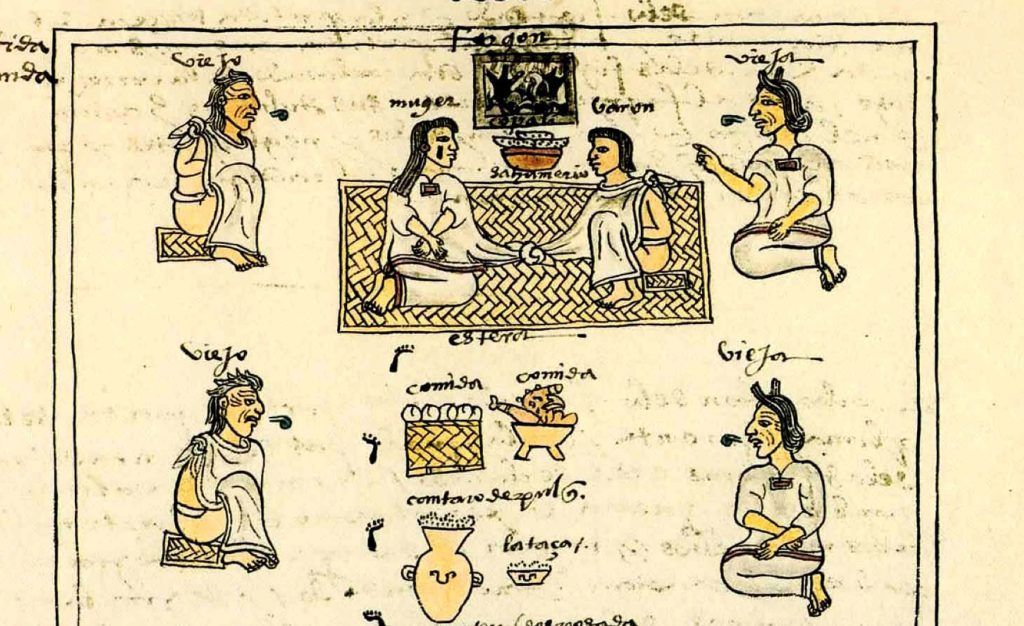 fogon
viejo
vieja
muger
varon
copali
sahumerio
estera
viejo
vieja
comida
comida
cantaro de pulq.
la taça